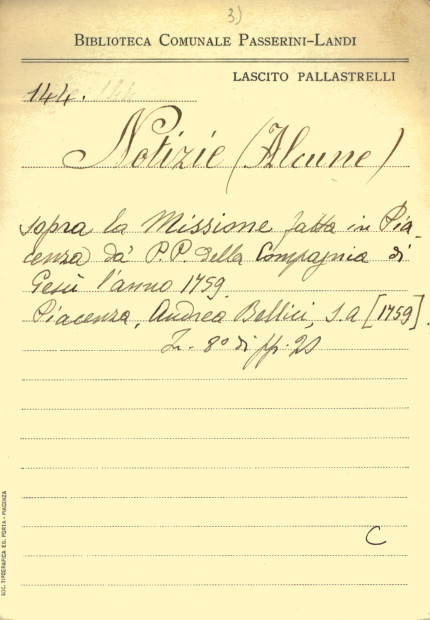 3)
BIBLIOTECA COMUNALE PASSERINI-LANDI
LASCITO PALLASTRELLI
144. 144
Notizie (Alcune)
sopra la Missione fatta in Pia-
cenza da' P.P. della Compagnia di
Gesù l'anno 1759.
Piacenza, Andrea Bellici, s.a [1759].
In- 8° di pp. 28
C
SOC. TIPOGRAFICA ED. PORTA - PIACENZA